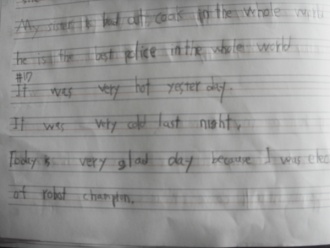 My is the best cook in the whole world
he is the last police in the whole world
#17
It was very hot yesterday.
It was very cold last night.
Today is very glad day because I was
of robot champion.